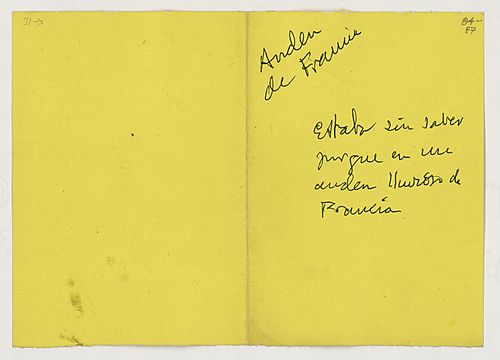 31→
84-
87
Anden
de Francia
Estaba sin saber
porque en un
anden lluvioso de
Francia